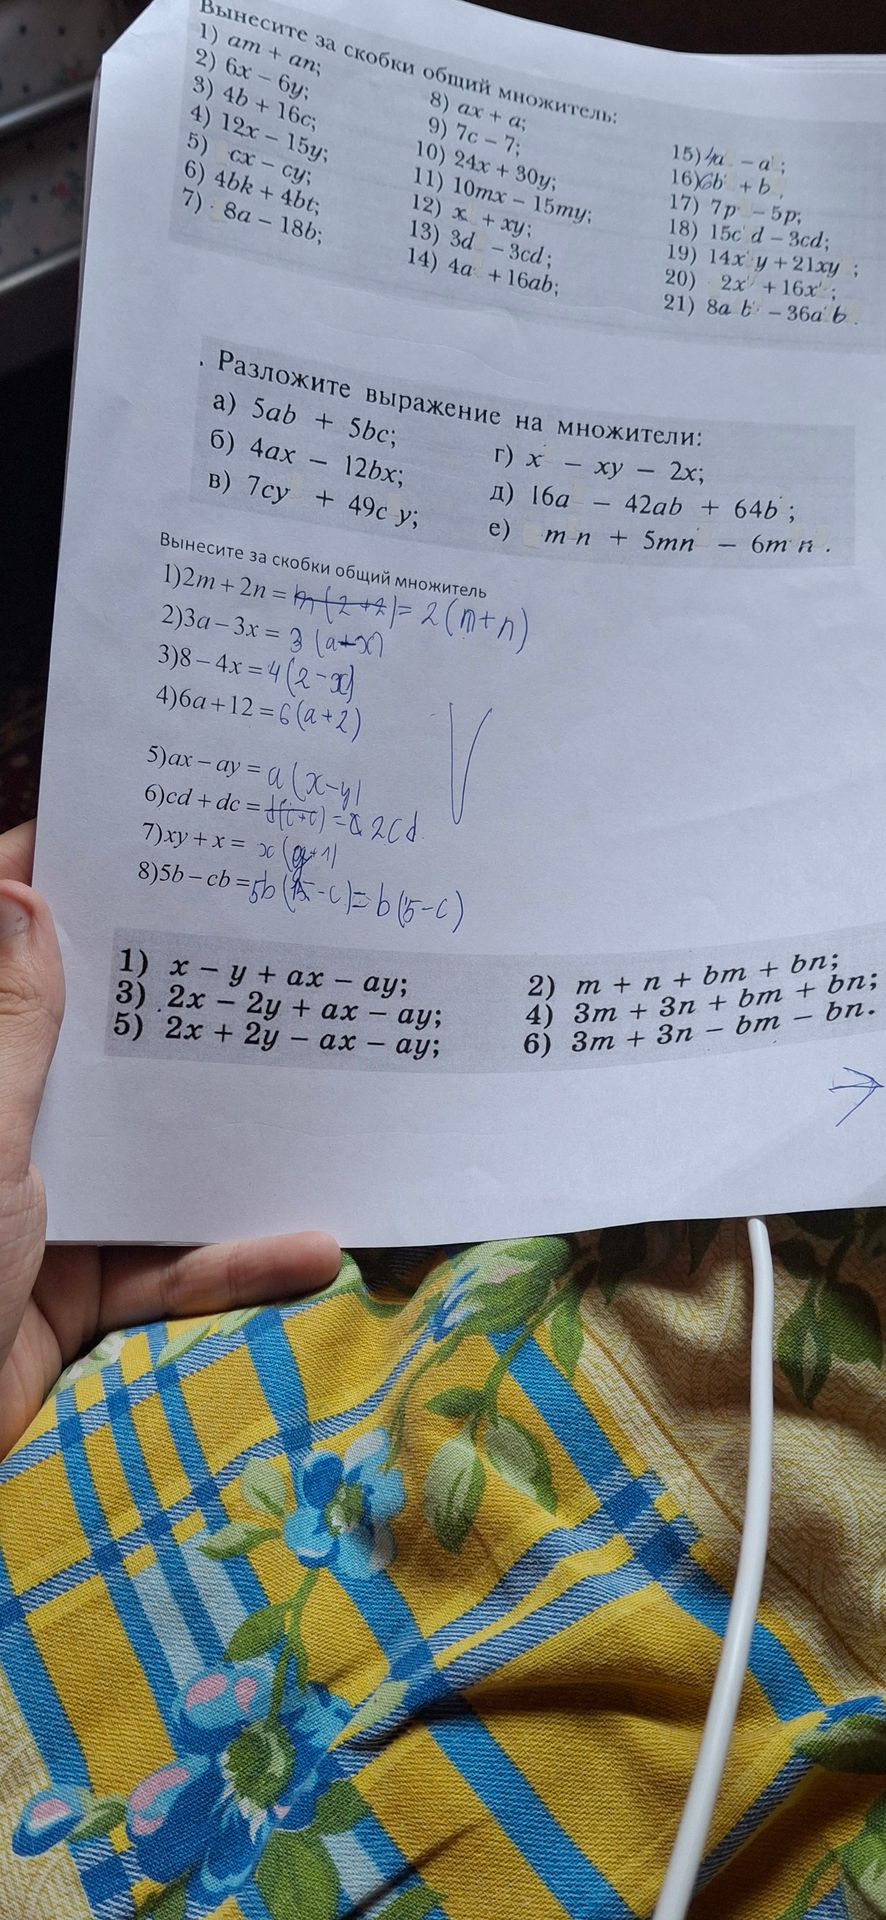 Вынесите за скобки общий множитель:
1) am + an;
2) 6x – 6y;
3) 4b + 16c;
4) 12x – 15y;
5) cx – cy;
6) 4bk + 4bt;
7) 8a – 18b;
8) ax + a;
9) 7c – 7;
10) 24x + 30y;
11) 10mx – 15my;
12) x + xy;
13) 3d – 3cd;
14) 4a + 16ab;
15) 4a – a ;
16) 6b + b
17) 7p – 5p;
18) 15c d – 3cd;
19) 14x y + 21xy ;
20) 2x + 16x ;
21) 8a b – 36a b .
. Разложите выражение на множители:
а) 5ab + 5bc;
б) 4ax – 12bx;
в) 7cy + 49c y;
г) x – xy – 2x;
д) 16a – 42ab + 64b ;
е) m n + 5mn – 6m n .
Вынесите за скобки общий множитель
1)2m + 2n = m(2+2) = 2(m+n)
2)3a – 3x = 3(a-x)
3)8 – 4x = 4(2-x)
4)6a + 12 = 6(a+2)
5)ax – ay = a(x-y)
6)cd + dc = d(c+c) = 2cd
7)xy + x = x(y+1)
8)5b – cb = 5b(5-c) = b(5-c)
1) x – y + ax – ay;
2) m + n + bm + bn;
3) 2x – 2y + ax – ay;
4) 3m + 3n + bm + bn;
5) 2x + 2y – ax – ay;
6) 3m + 3n – bm – bn.